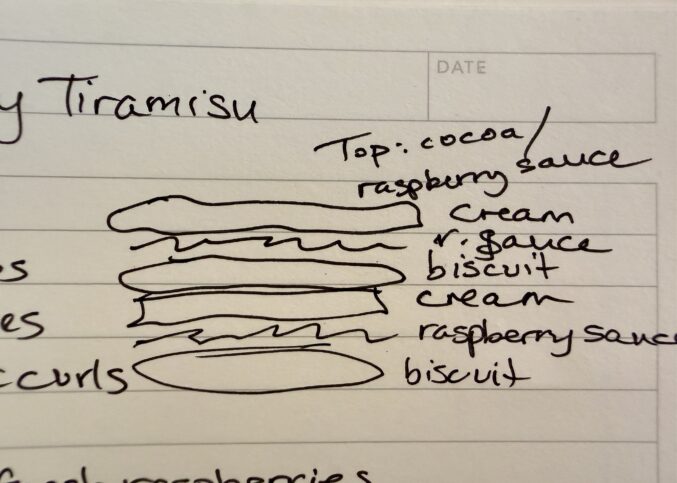 y Tiramisu
DATE
Top: cocoa/
raspberry sauce
cream
r. sauce
biscuit
cream
es
raspberry sauce
curls
biscuit
raspberries